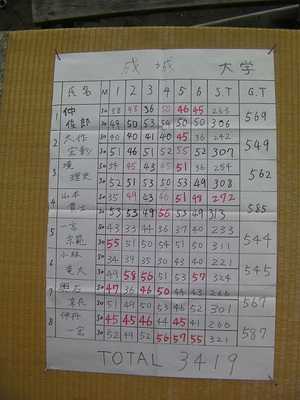 成城 大学
氏名 M 1 2 3 4 5 6 S.T G.T
1 仲 30 38 48 36 50 46 45 263 569
俊郎 50 49 50 53 54 50 50 306
2 大作 30 40 40 41 40 45 36 242 549
宏彰 50 51 46 51 52 55 52 307
3 30 34 45 43 45 51 36 254 562
理史 50 52 51 53 50 53 49 308
4 山本 30 35 49 43 46 51 48 272 585
貴士 50 53 53 49 56 53 49 313
5 一言 30 43 33 44 36 37 40 233 544
宗範 50 55 51 50 54 51 50 311
6 小林 30 34 39 35 30 43 40 221 545
竜大 50 49 58 56 51 53 57 324
7 明石 30 47 36 46 50 44 43 266 567
50 51 49 50 53 46 52 301
8 伊丹 30 45 45 46 44 45 41 266 587
一宏 50 52 49 52 56 57 55 321
TOTAL 3419